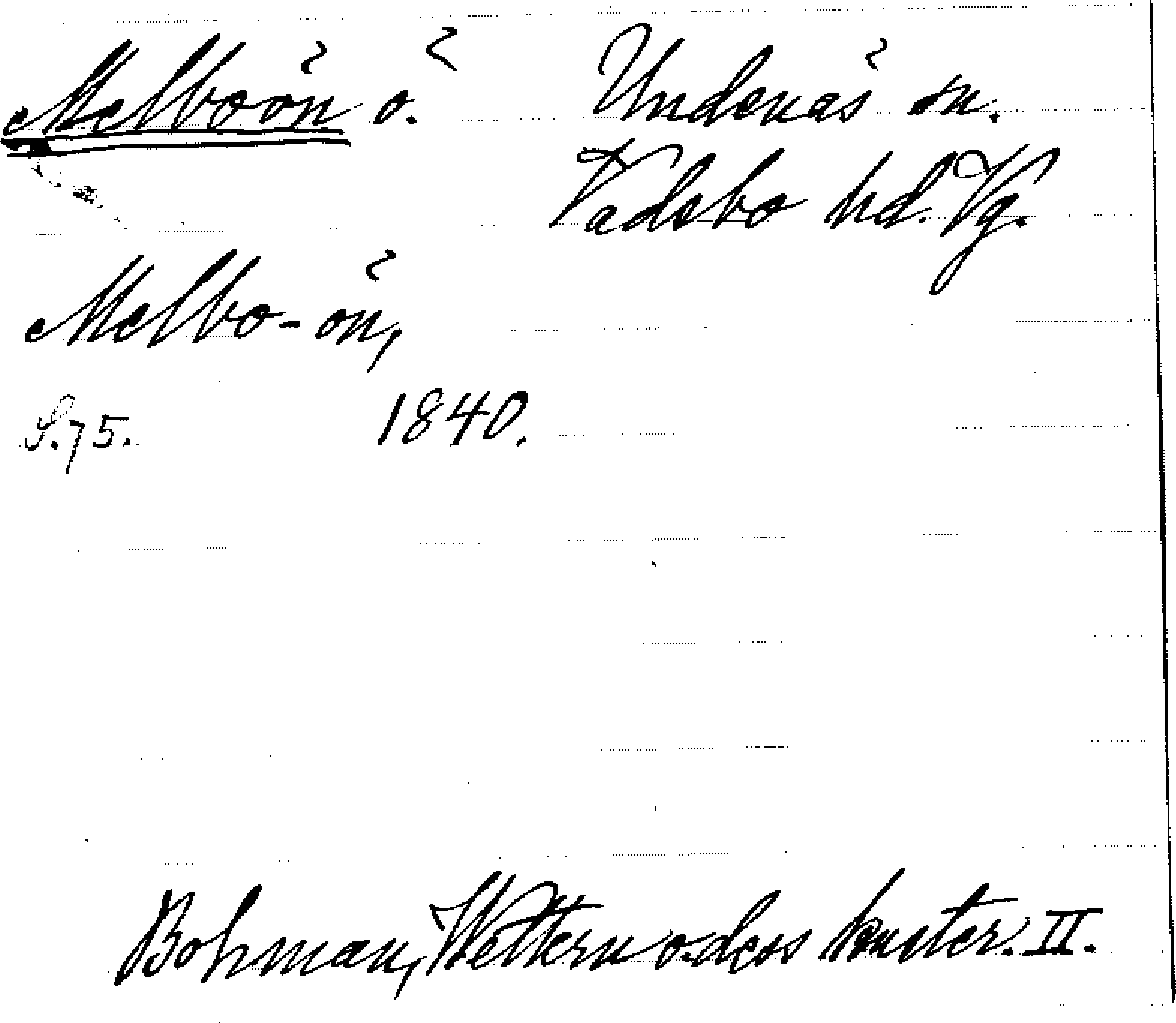 Melboön ö. Undenäs sn.
Vadsbo hd. Vg.
Melbo-ön,
S. 75. 1840.
Bohman, Wettern o. dess kuster. II.